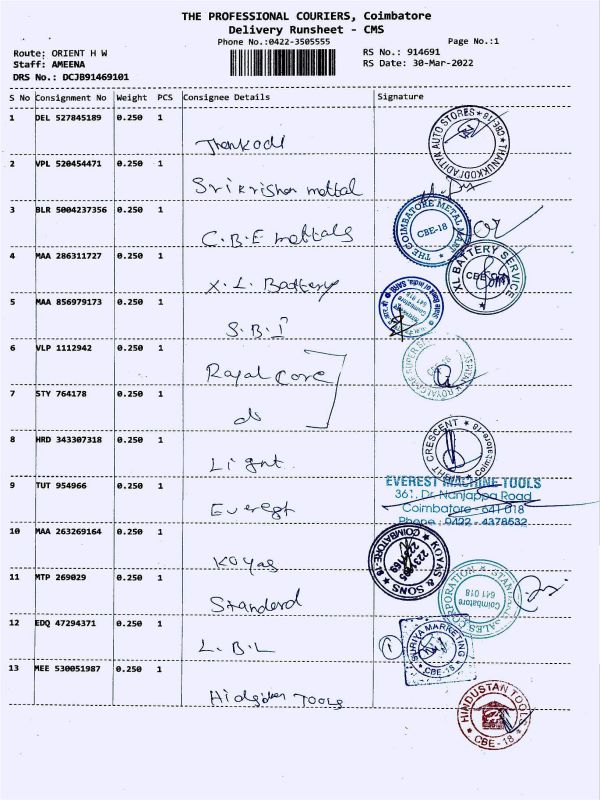 THE PROFESSIONAL COURIERS, Coimbatore
Delivery Runsheet - CMS
Phone No.:0422-3505555
Page No.:1
Route: ORIENT H W
RS No.: 914691
Staff: AMEENA
RS Date: 30-Mar-2022
DRS No.: DCJB91469101
S No Consignment No Weight PCS Consignee Details Signature
1 DEL 527845189 0.250 1
AUTO STORES
THANUKKODI ADITYA
CBE-18
2 VPL 520454471 0.250 1
Srikrishna mettal
3 BLR 5004237356 0.250 1
THE COIMBATORE METAL MART
CBE-18
C.B.E mettals
4 MAA 286311727 0.250 1
XL BATTERY SERVICE
X. L. Battery
5 MAA 856979173 0.250 1
State Bank of India
Coimbatore
641 018
S.B.I
6 VLP 1112942 0.250 1
Royal Core
7 STY 764178 0.250 1
do
8 HRD 343307318 0.250 1
CRESCENT
Coimbatore-18
Light
9 TUT 954966 0.250 1
EVEREST MACHINE TOOLS
361, Dr. Nanjappa Road
Coimbatore - 641 018
Phone : 0422 - 4378532
Everest
10 MAA 263269164 0.250 1
COIMBATORE-18
KOYAS & SONS
Koyas
11 MTP 269029 0.250 1
STANDARD SALES CORPORATION
Coimbatore
641 018
Standerd
12 EDQ 47294371 0.250 1
SURIYA MARKETING
CBE-18
L.B.L
13 MEE 530051987 0.250 1
HINDUSTAN TOOLS
CBE-18